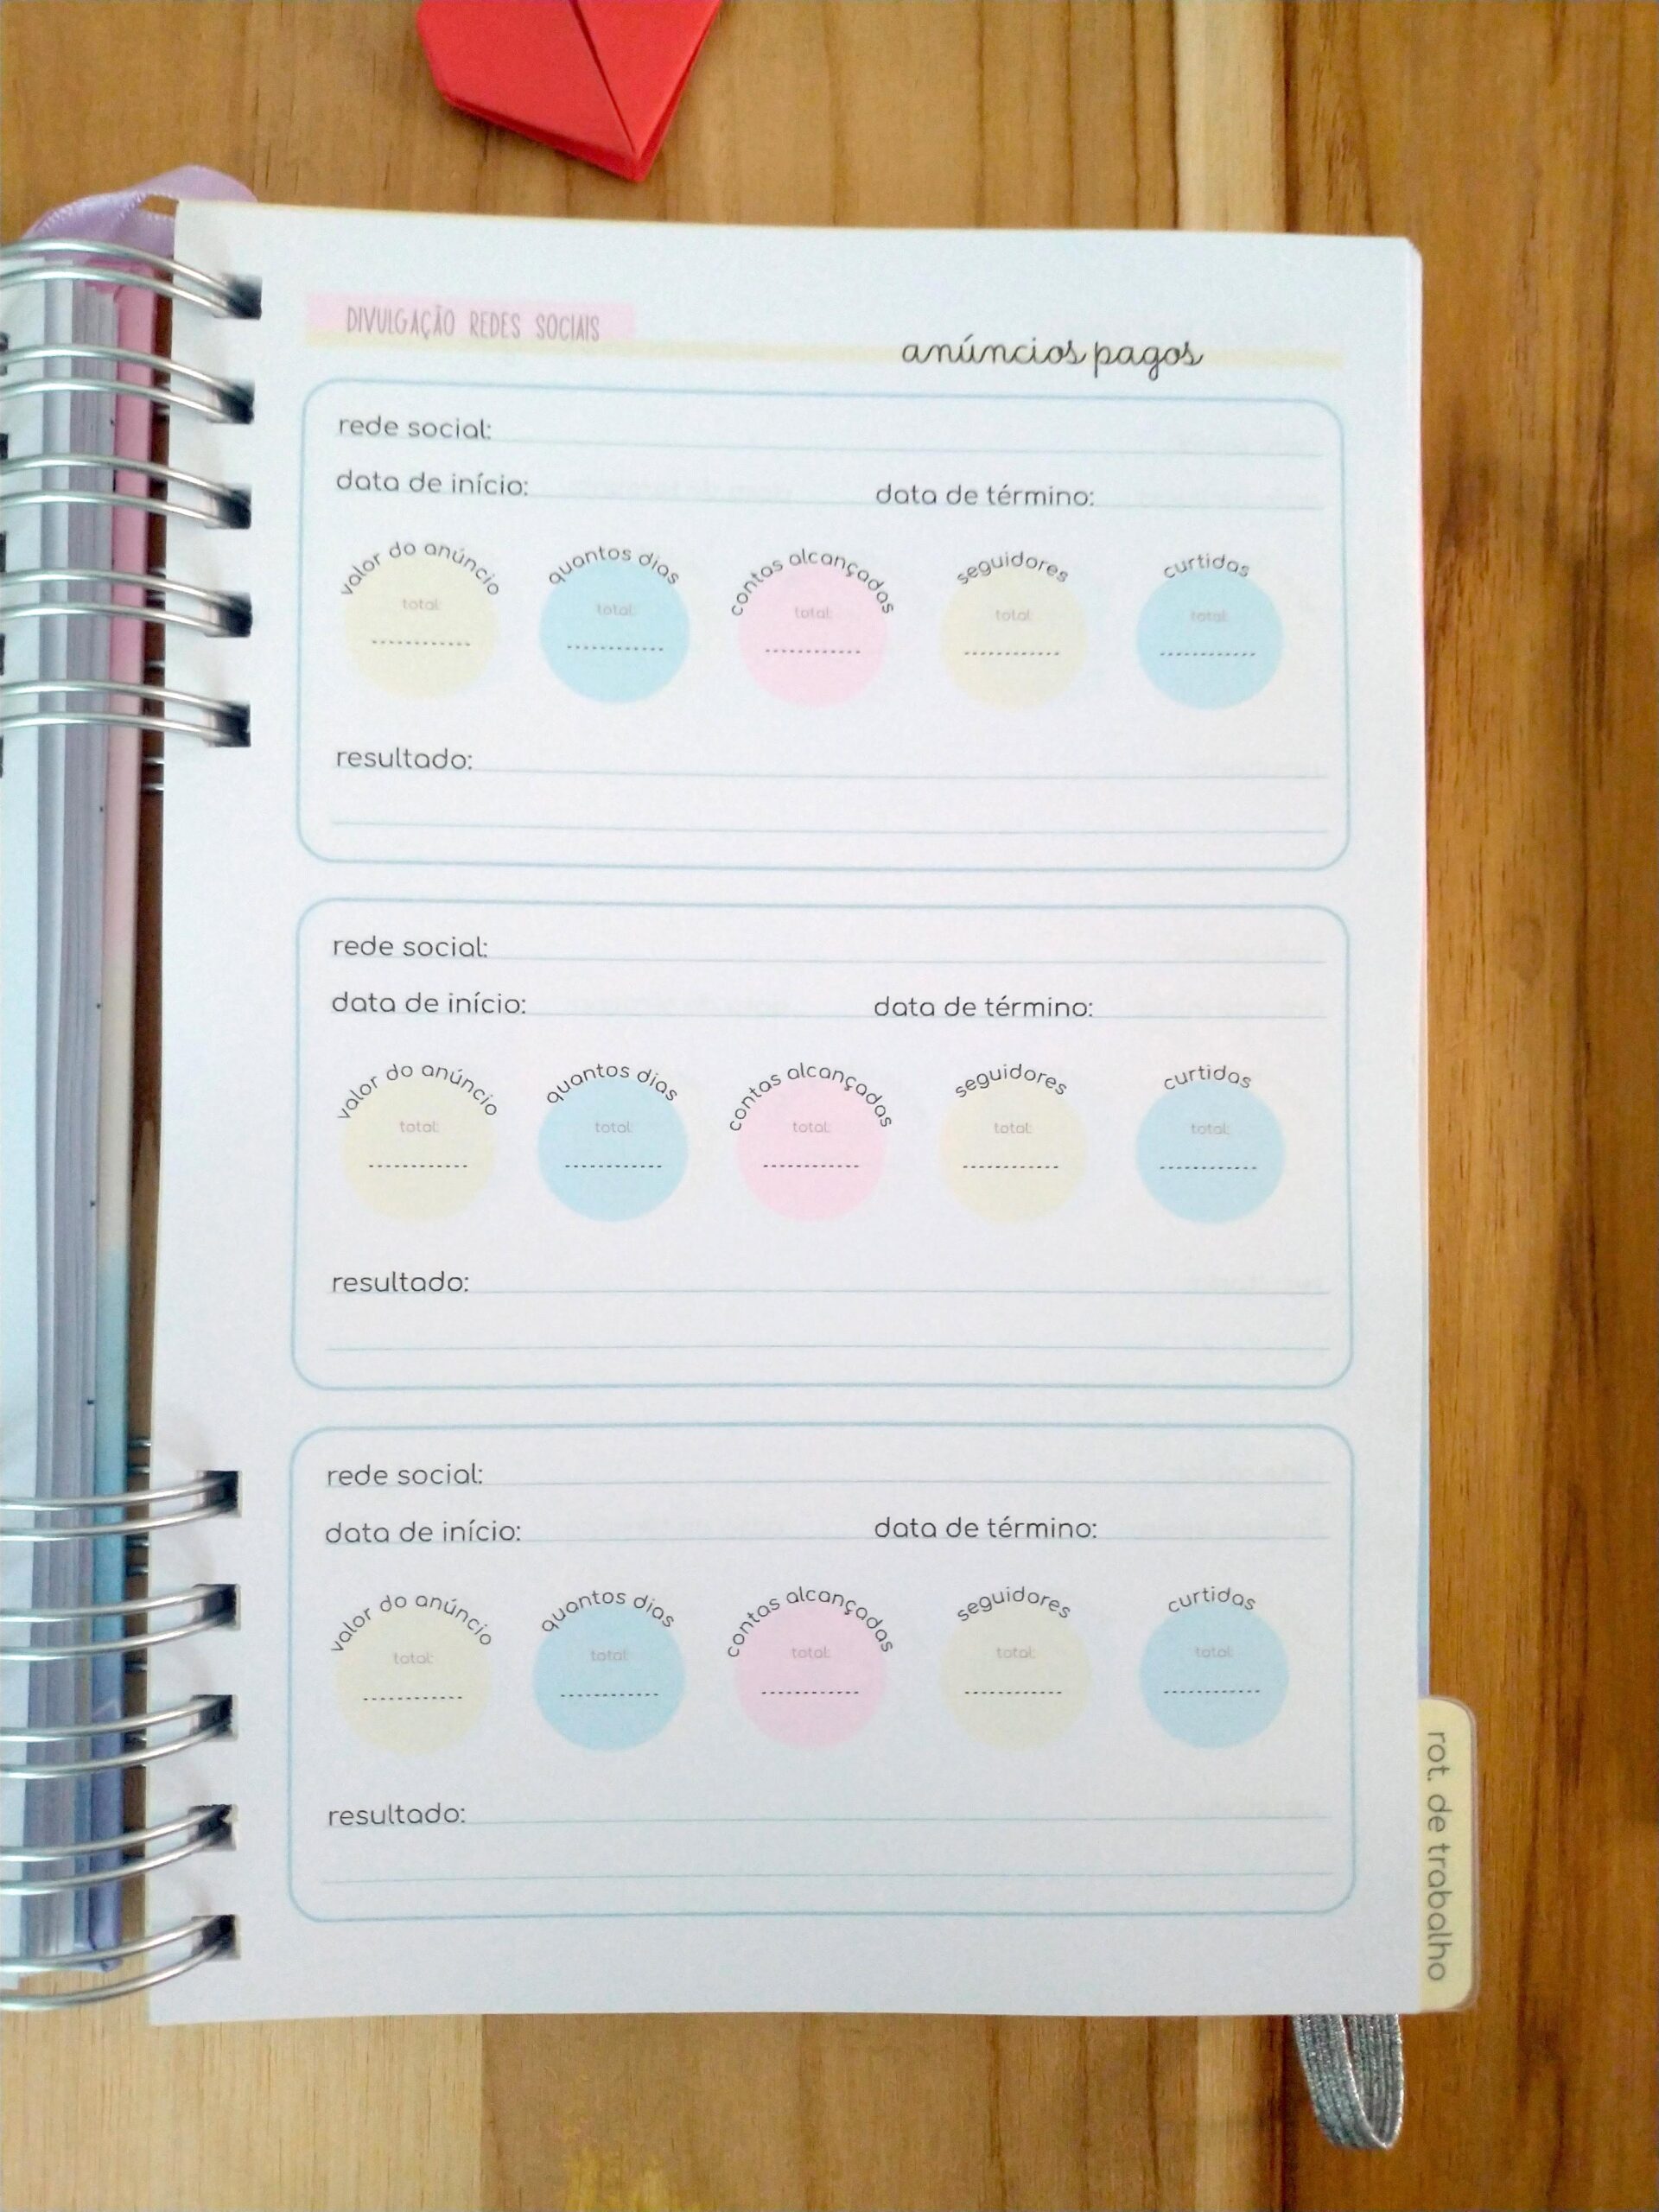 DIVULGAÇÃO REDES SOCIAIS
anúncios pagos
rede social:
data de início: data de término:
valor do anúncio quantos dias contas alcançadas seguidores curtidas
total: total: total: total: total:
resultado:
rede social:
data de início: data de término:
valor do anúncio quantos dias contas alcançadas seguidores curtidas
total: total: total: total: total:
resultado:
rede social:
data de início: data de término:
valor do anúncio quantos dias contas alcançadas seguidores curtidas
total: total: total: total: total:
resultado:
rot. de trabalho